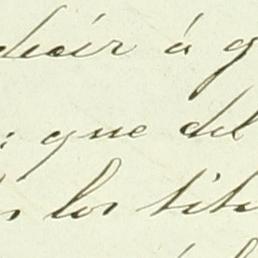 decir á q
: que del
los títu